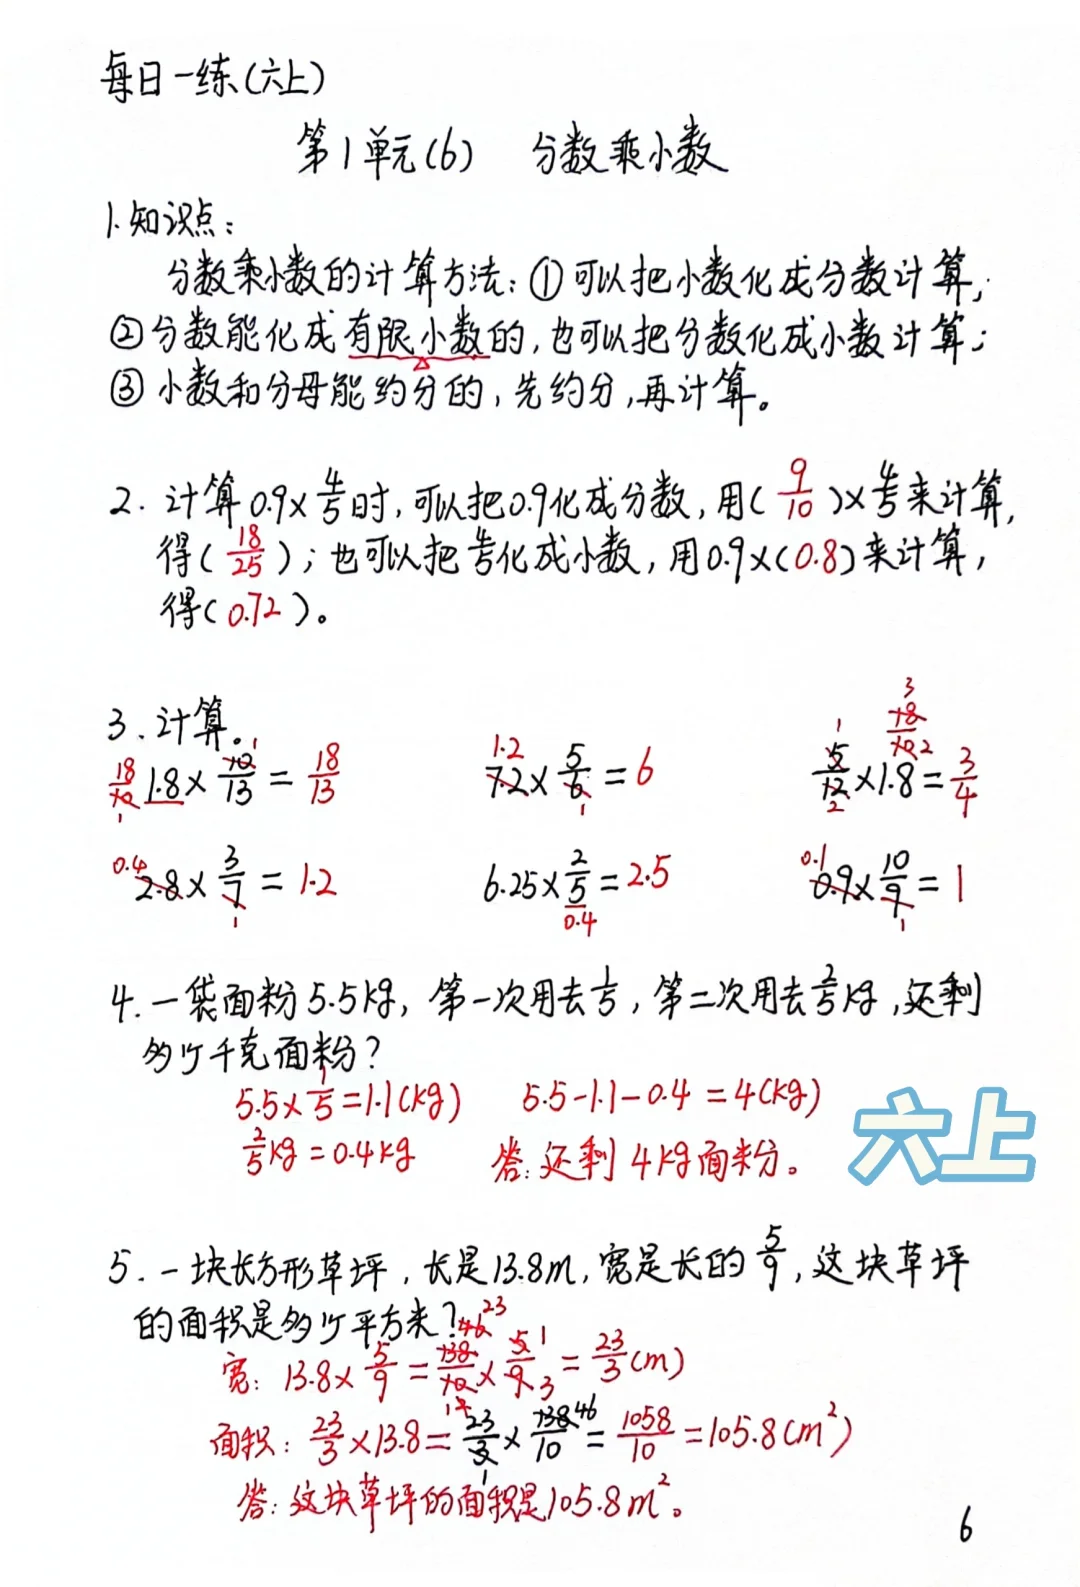 每日一练(六上)
第1单元(6) 分数乘小数
1.知识点:
分数乘小数的计算方法:①可以把小数化成分数计算;
②分数能化成有限小数的,也可以把分数化成小数计算;
③小数和分母能约分的,先约分,再计算。
2. 计算0.9×4/5时,可以把0.9化成分数,用(9/10)×4/5来计算,
得(18/25);也可以把4/5化成小数,用0.9×(0.8)来计算,
得(0.72)。
3.计算。
18/10 1 1.8×10/13 1=18/13 1.2 7.2×5/6 1=6 5/12 1 2×1.8 18/10 3 2=3/4
0.4 2.8×3/7 1=1.2 6.25×2/5 0.4=2.5 0.1 0.9×10/9 1=1
4.一袋面粉5.5kg,第一次用去1/5,第二次用去2/5kg,还剩
多少千克面粉?
5.5×1/5=1.1(kg) 5.5-1.1-0.4=4(kg)
2/5kg=0.4kg 答:还剩4kg面粉。
六上
5.一块长方形草坪,长是13.8m,宽是长的5/9,这块草坪
的面积是多少平方米?
宽:13.8×5/9=138/10 46 23×5/9 1 3=23/3(m)
面积:23/3×13.8=23/3 1×138/10 46=1058/10=105.8(m²)
答:这块草坪的面积是105.8m²。
6